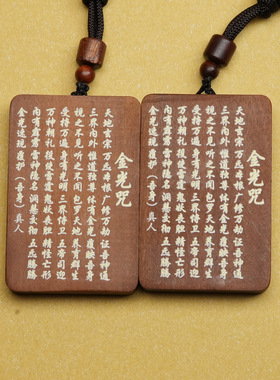 金光咒
天地玄宗 万炁本根 广修万劫 证吾神通
三界内外 惟道独尊 体有金光 覆映吾身
视之不见 听之不闻 包罗天地 养育群生
受持万遍 身有光明 三界侍卫 五帝司迎
万神朝礼 役使雷霆 鬼妖丧胆 精怪亡形
内有霹雳 雷神隐名 洞慧交彻 五炁腾腾
金光速现 覆护（吾身）真人
金光咒
天地玄宗 万炁本根 广修万劫 证吾神通
三界内外 惟道独尊 体有金光 覆映吾身
视之不见 听之不闻 包罗天地 养育群生
受持万遍 身有光明 三界侍卫 五帝司迎
万神朝礼 役使雷霆 鬼妖丧胆 精怪亡形
内有霹雳 雷神隐名 洞慧交彻 五炁腾腾
金光速现 覆护（吾身）真人